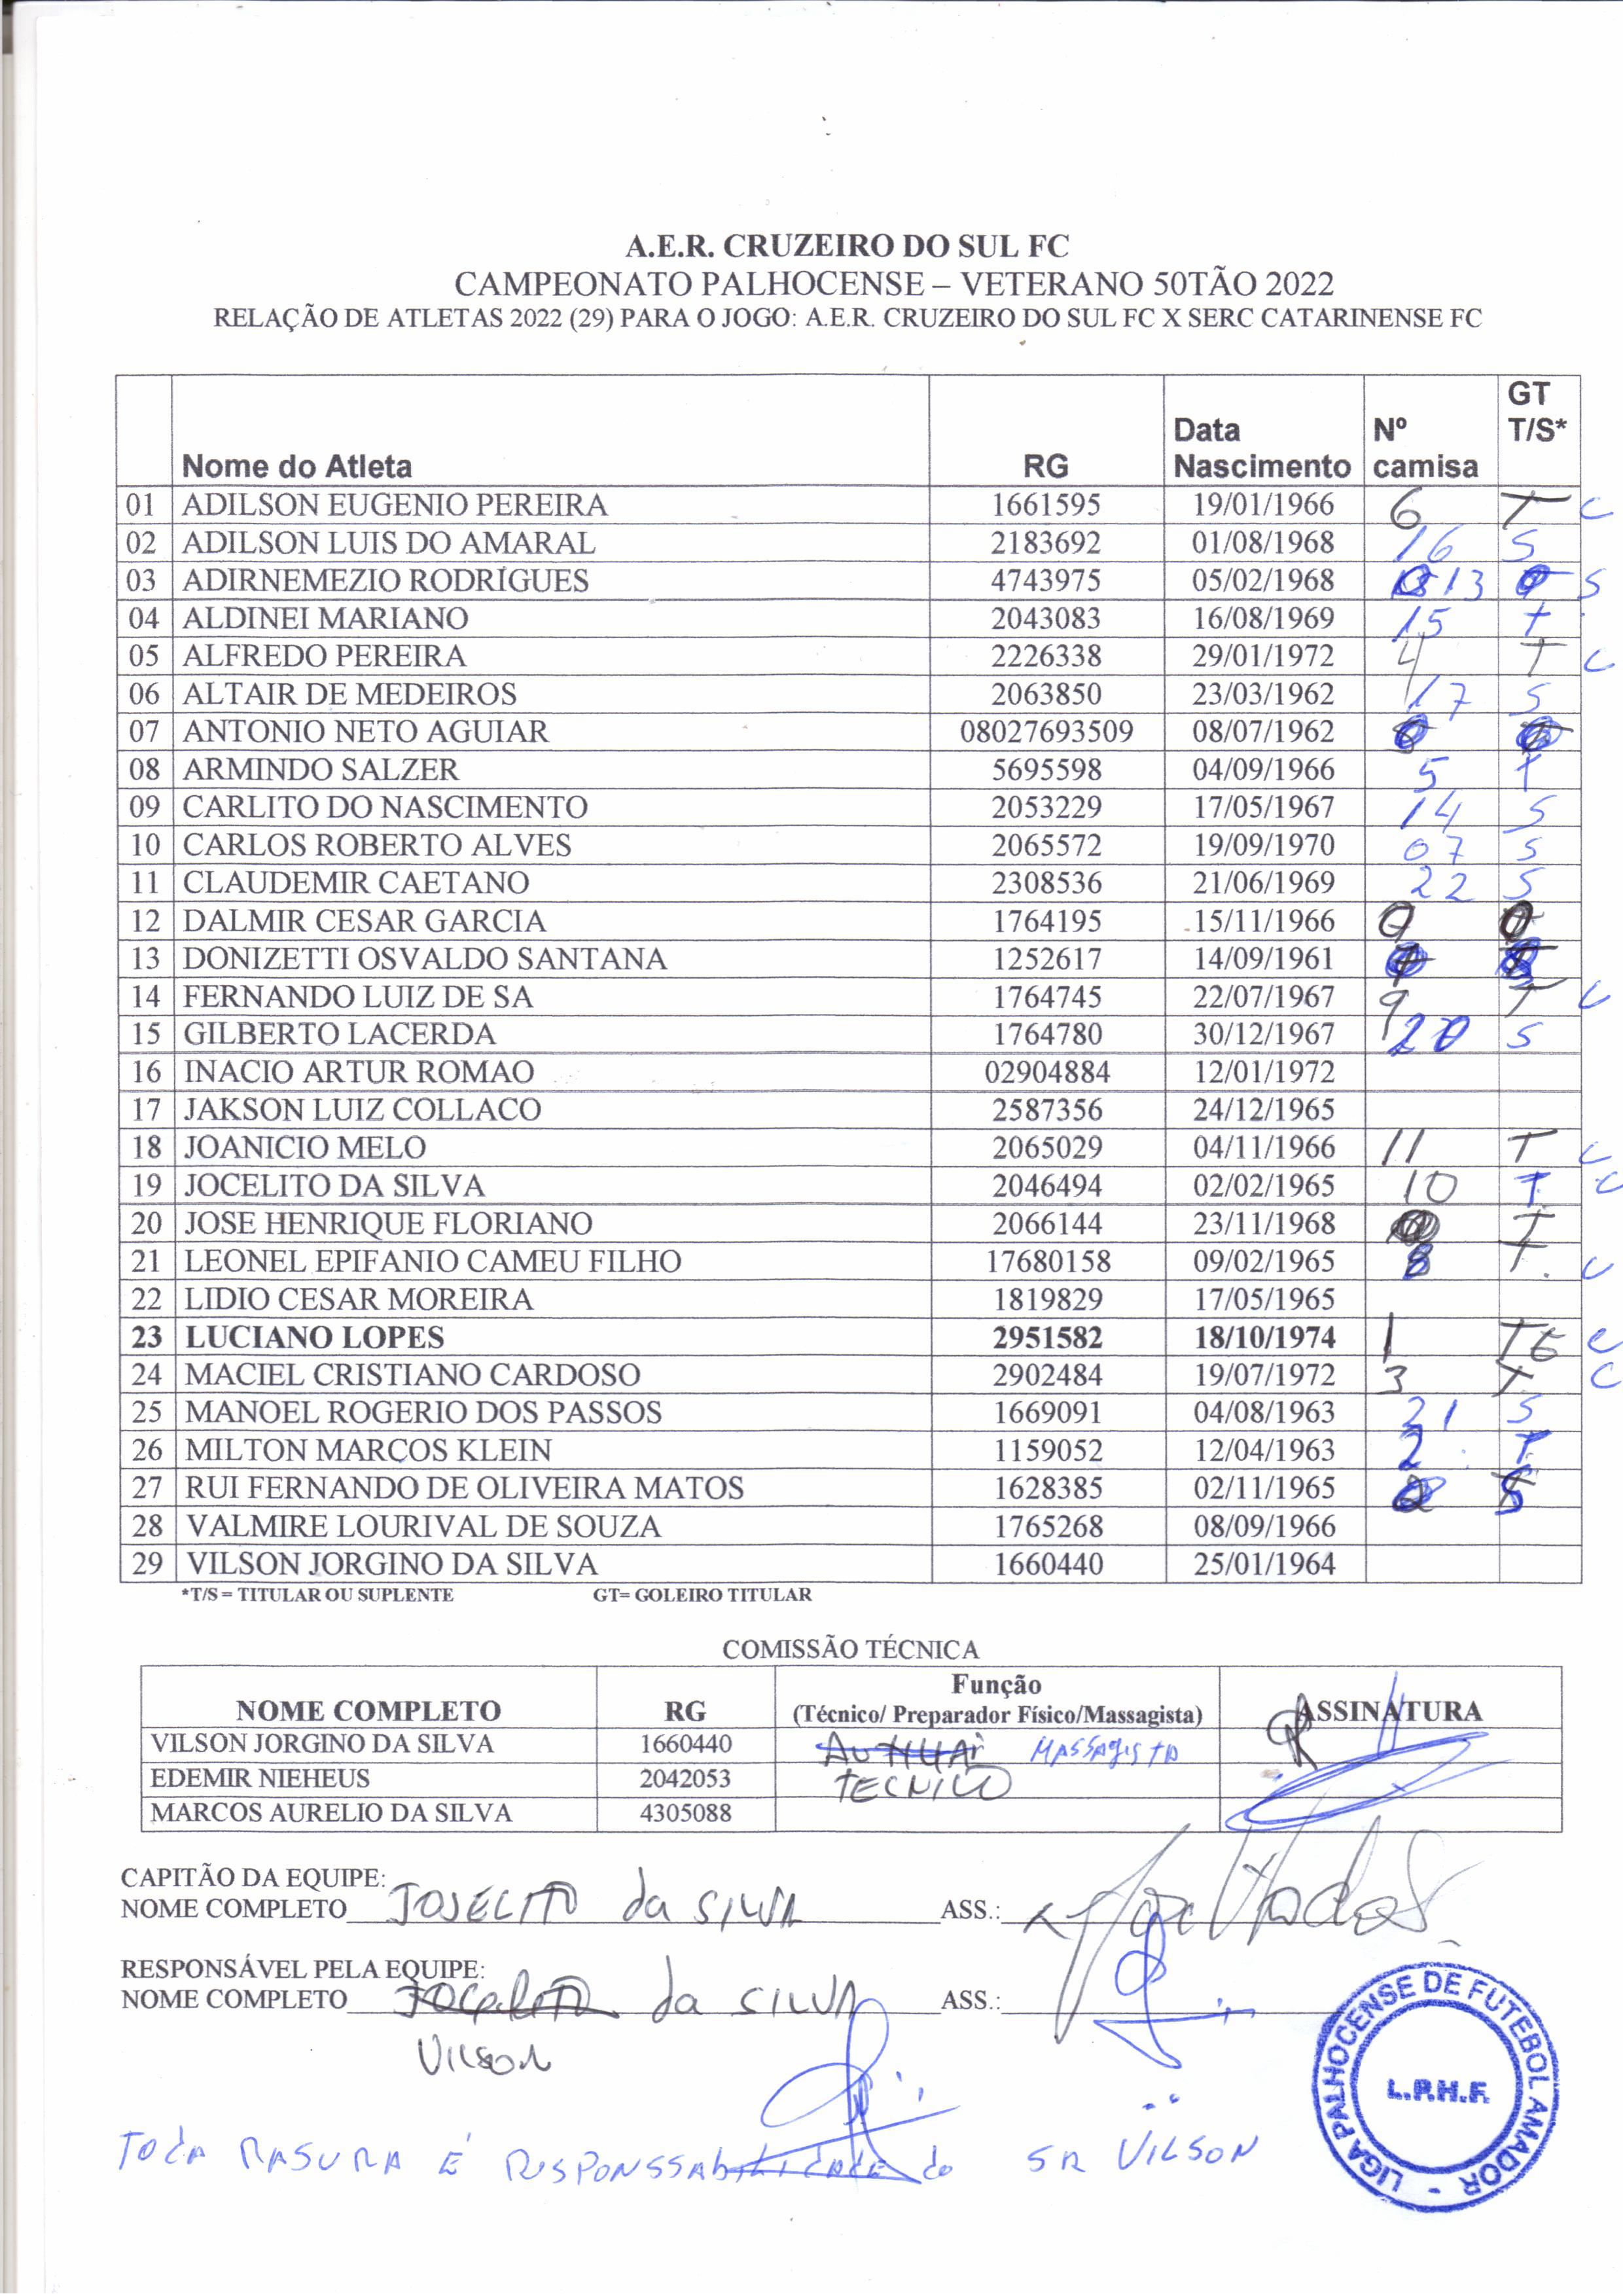 A.E.R. CRUZEIRO DO SUL FC
CAMPEONATO PALHOCENSE – VETERANO 50TÃO 2022
RELAÇÃO DE ATLETAS 2022 (29) PARA O JOGO: A.E.R. CRUZEIRO DO SUL FC X SERC CATARINENSE FC
Nome do Atleta RG Data Nascimento Nº camisa GT T/S*
01 ADILSON EUGENIO PEREIRA 1661595 19/01/1966 6 T C
02 ADILSON LUIS DO AMARAL 2183692 01/08/1968 16 S
03 ADIRNEMEZIO RODRIGUES 4743975 05/02/1968 13 S
04 ALDINEI MARIANO 2043083 16/08/1969 15 T
05 ALFREDO PEREIRA 2226338 29/01/1972 4 T C
06 ALTAIR DE MEDEIROS 2063850 23/03/1962 17 S
07 ANTONIO NETO AGUIAR 08027693509 08/07/1962
08 ARMINDO SALZER 5695598 04/09/1966 5 T
09 CARLITO DO NASCIMENTO 2053229 17/05/1967 14 S
10 CARLOS ROBERTO ALVES 2065572 19/09/1970 07 S
11 CLAUDEMIR CAETANO 2308536 21/06/1969 22 S
12 DALMIR CESAR GARCIA 1764195 15/11/1966
13 DONIZETTI OSVALDO SANTANA 1252617 14/09/1961
14 FERNANDO LUIZ DE SA 1764745 22/07/1967 9 T C
15 GILBERTO LACERDA 1764780 30/12/1967 20 S
16 INACIO ARTUR ROMAO 02904884 12/01/1972
17 JAKSON LUIZ COLLACO 2587356 24/12/1965
18 JOANICIO MELO 2065029 04/11/1966 11 T C
19 JOCELITO DA SILVA 2046494 02/02/1965 10 T C
20 JOSE HENRIQUE FLORIANO 2066144 23/11/1968 T
21 LEONEL EPIFANIO CAMEU FILHO 17680158 09/02/1965 8 T C
22 LIDIO CESAR MOREIRA 1819829 17/05/1965
23 LUCIANO LOPES 2951582 18/10/1974 1 TG C
24 MACIEL CRISTIANO CARDOSO 2902484 19/07/1972 3 T C
25 MANOEL ROGERIO DOS PASSOS 1669091 04/08/1963 21 S
26 MILTON MARCOS KLEIN 1159052 12/04/1963 2 T
27 RUI FERNANDO DE OLIVEIRA MATOS 1628385 02/11/1965 S
28 VALMIRE LOURIVAL DE SOUZA 1765268 08/09/1966
29 VILSON JORGINO DA SILVA 1660440 25/01/1964
*T/S = TITULAR OU SUPLENTE GT= GOLEIRO TITULAR
COMISSÃO TÉCNICA
NOME COMPLETO RG Função (Técnico/ Preparador Físico/Massagista) ASSINATURA
VILSON JORGINO DA SILVA 1660440 MASSAGISTA
EDEMIR NIEHEUS 2042053 TECNICO
MARCOS AURELIO DA SILVA 4305088
CAPITÃO DA EQUIPE:
NOME COMPLETO JOSELITO da SILVA ASS.:
RESPONSÁVEL PELA EQUIPE:
NOME COMPLETO JOCELITO da SILVA ASS.:
VILSON
TODA RASURA É RESPONSSABILIDADE do SR VILSON
LIGA PALHOCENSE DE FUTEBOL AMADOR -
L.P.H.F.